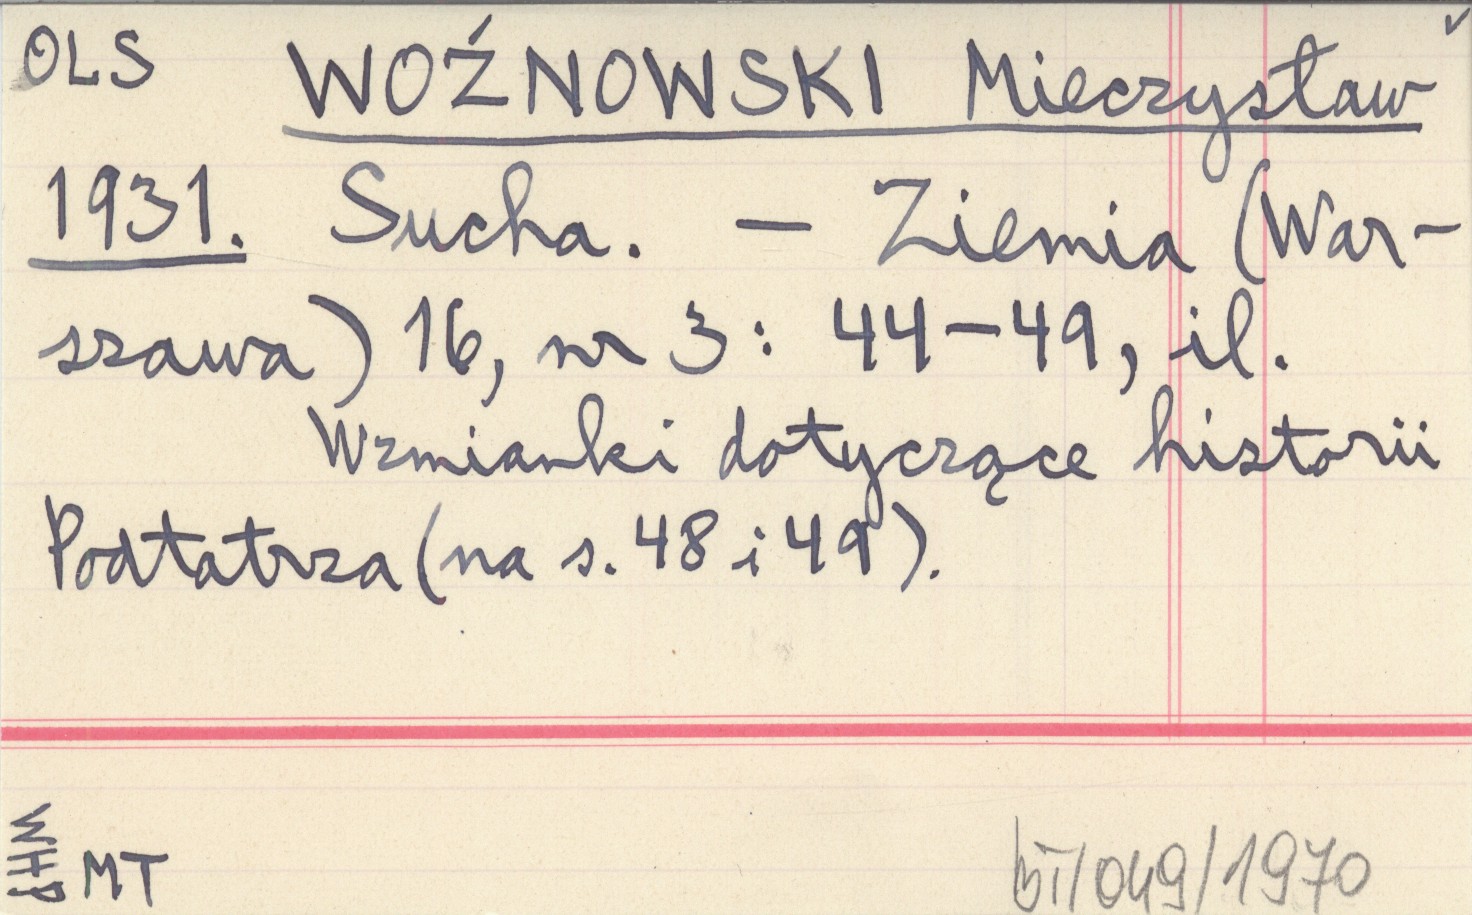 OLS WOŹNOWSKI Mieczysław
1931. Sucha. — Ziemia (War-
szawa) 16, nr 3: 44—49, il.
Wzmianki dotyczące historii
Podtatrza (na s. 48 i 49).
WHP
MT
bT/049/1970